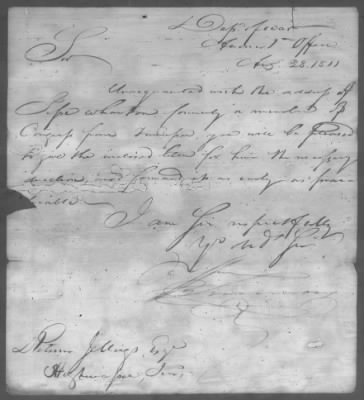 Dept of war
Accounts Office
Aug 28. 1811
Sir
Unacquainted with the address of
Jesse Wharton formerly a member of
Congress from Tennessee you will be pleased
to give the inclosed letter for him the necessary
direction, and forward it as early as prac-
ticable.
I am Sir respectfully
Yr Obdt Servt
Esqr